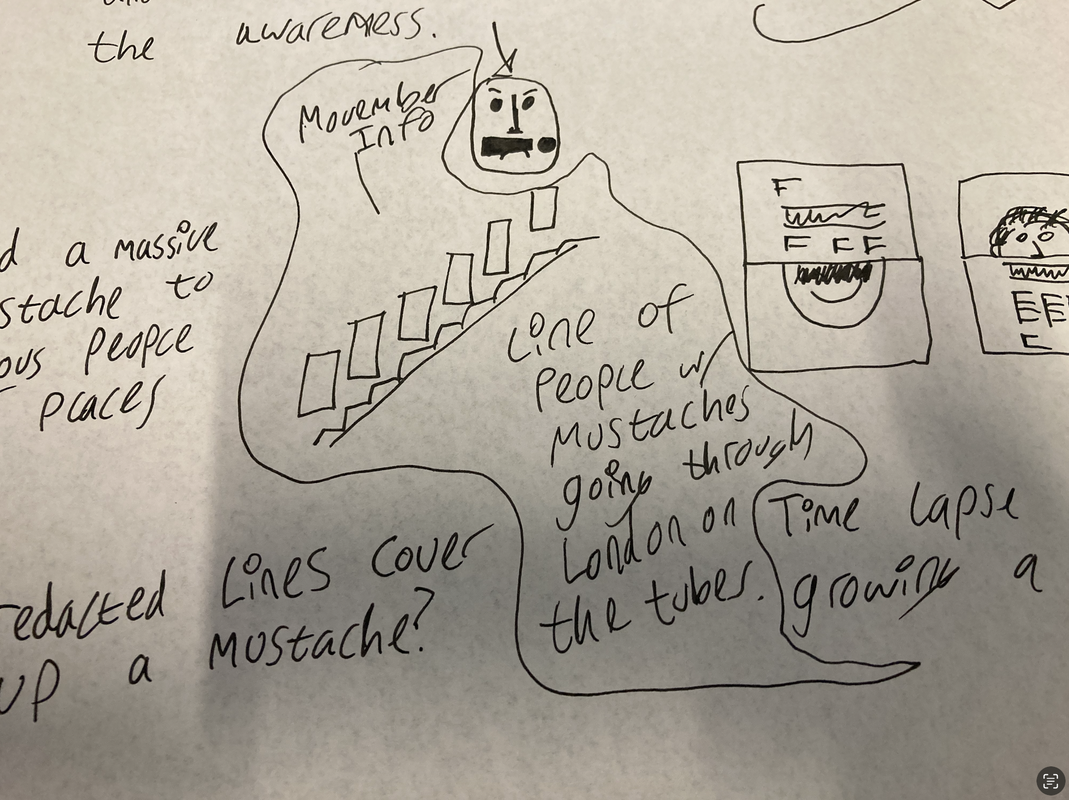 the awareness.
Movember
Info
d a massive
stache to
ous People
Places
Line of
People w/
Mustaches
going through
London on
the tubes.
F
F F F
EEE
E
Time lapse
growing a
redacted Lines cover
up a mustache?